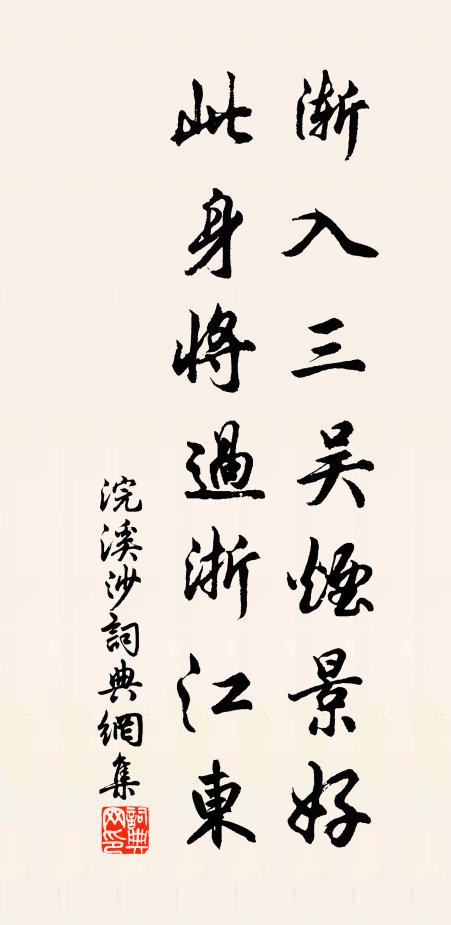 漸入三吳煙景好
此身將過浙江東
浣溪沙詞典網集
詞典網印